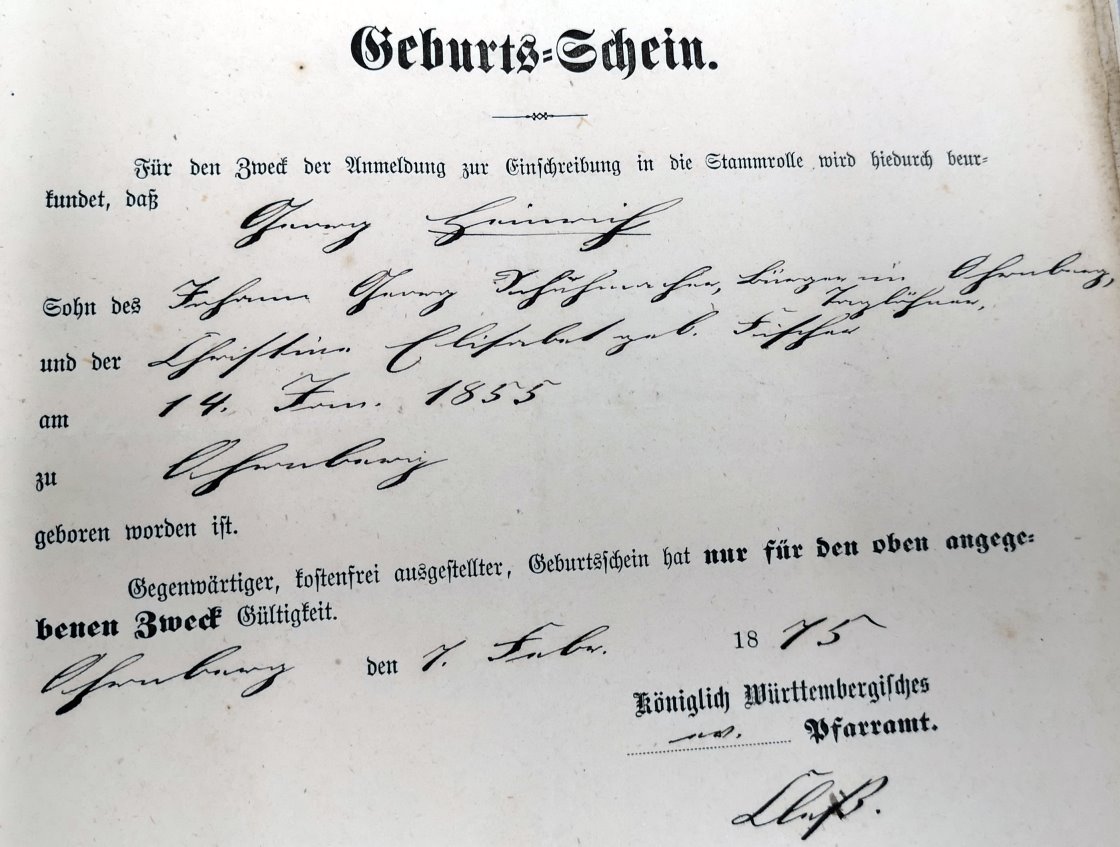 Geburts-Schein.
Für den Zweck der Anmeldung zur Einschreibung in die Stammrolle wird hiedurch beur-
kundet, daß
Georg Heinrich
Sohn des Johann Georg Schuhmacher, Bürger in Ohrnberg,
Taglöhner,
und der Christine Elisabet geb. Fischer
am 14. Jan. 1855
zu Ohrnberg
geboren worden ist.
Gegenwärtiger, kostenfrei ausgestellter, Geburtsschein hat nur für den oben angege-
benen Zweck Gültigkeit.
Ohrnberg den 7. Febr. 1875
Königlich Württembergisches
ev. Pfarramt.